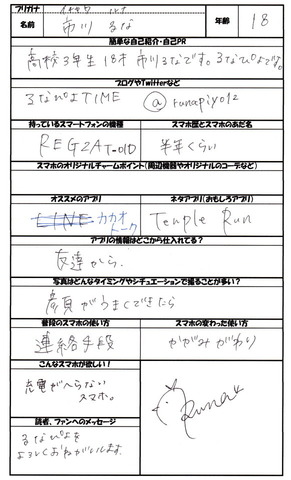 フリガナ イチカワ ルナ
名前 市川 るな 年齢 18
簡単な自己紹介・自己PR
高校3年生18才市川るなです。るなぴよです。
ブログやTwitterなど
るなぴよTIME @runapiyo12
持っているスマートフォンの機種 スマホ歴とスマホのあだ名
REGZA T-01D 半年くらい
スマホのオリジナルチャームポイント(周辺機器やオリジナルのコーデなど)
オススメのアプリ ネタアプリ(おもしろアプリ)
LINE カカオトーク Temple Run
アプリの情報はどこから仕入れてる?
友達から。
写真はどんなタイミングやシチュエーションで撮ることが多い?
変顔がうまくできたら
普段のスマホの使い方 スマホの変わった使い方
連絡手段 かがみがわり
こんなスマホが欲しい!
充電がへらない
スマホ。
Runa
読者、ファンへのメッセージ
るなぴよを
よろしくおねがいします。